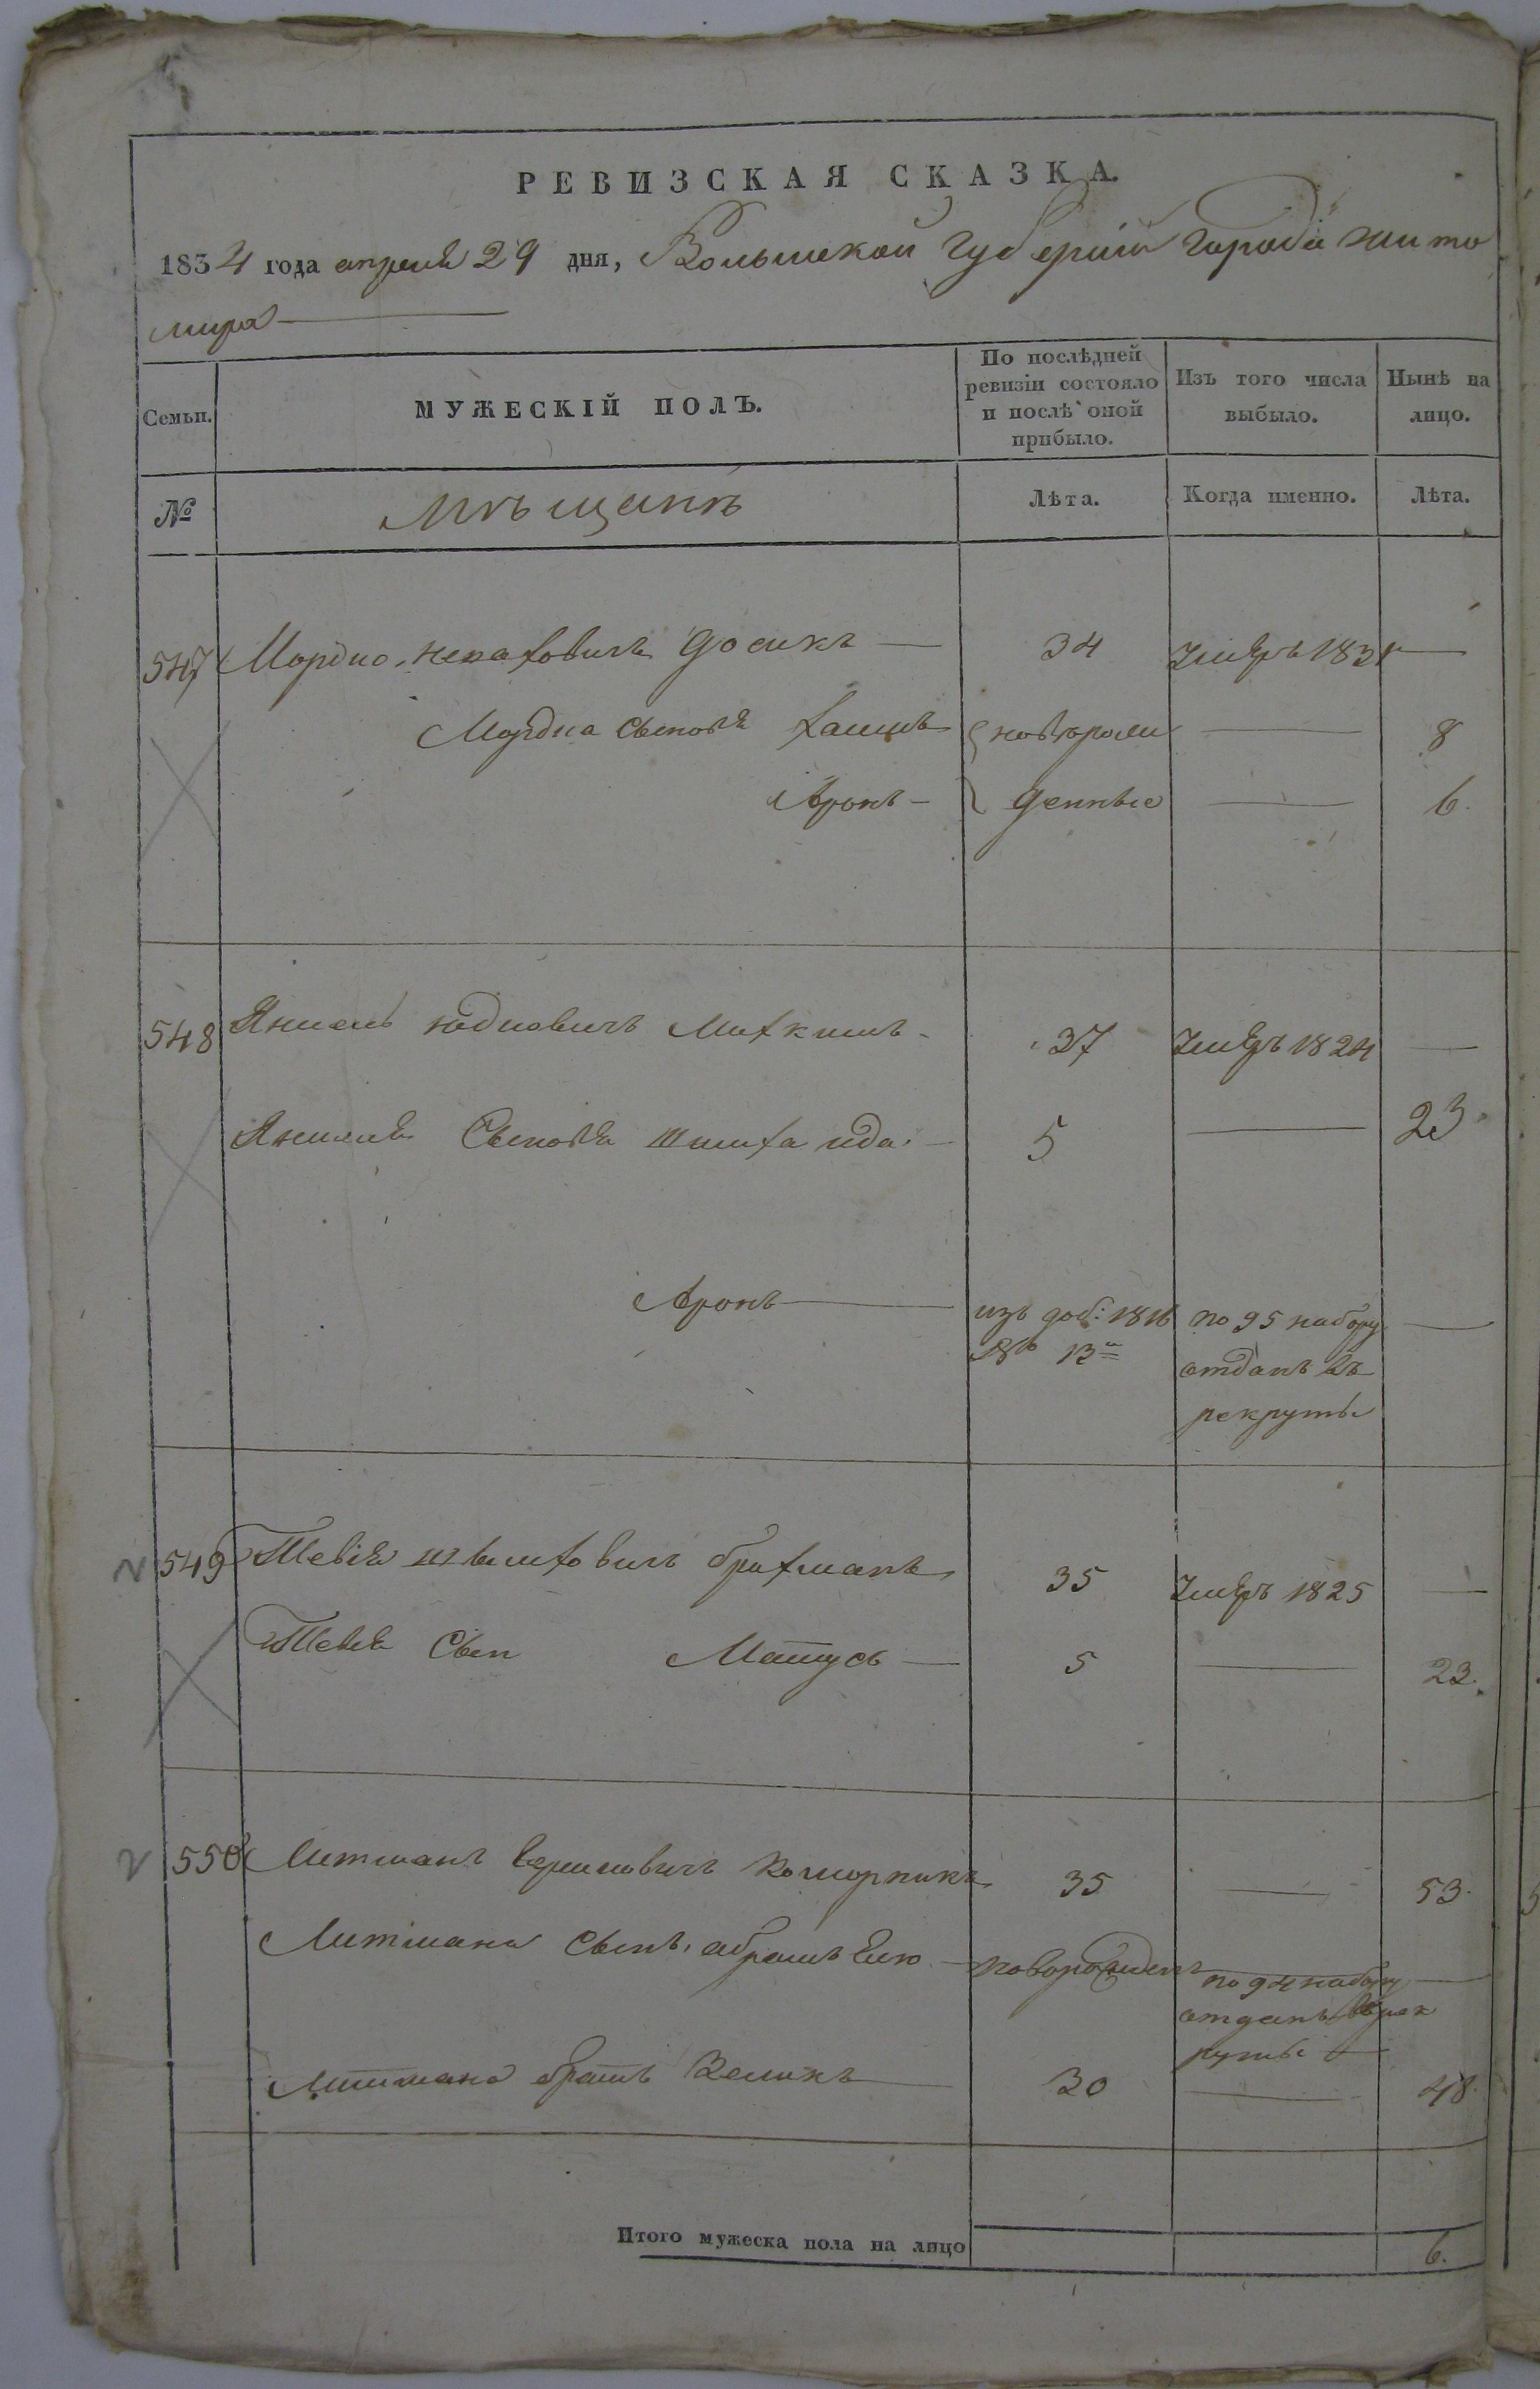 РЕВИЗСКАЯ СКАЗКА.
1834 года апреля 29 дня, Волынской губернии города Жито
мира
Семьи.
МУЖЕСКІЙ ПОЛЪ.
По послѣдней ревизіи состояло и послѣ оной прибыло.
Изъ того числа выбыло.
Нынѣ на лицо.
№
Мѣщанѣ
Лѣта.
Когда именно.
Лѣта.
547 Мордко Досикъ — 34 умеръ 1831 —
Мордка сыновя Хаимъ новорож — 8
Аронъ — денные — 6.
548 Янкель Юдковичъ 37 умеръ 1824 —
Янкеля Сыновя 5 — 23
Аронъ — изъ доб: 1816 по 95 набору —
№ 13 отданъ въ
рекруты
549 Тевія Брахманъ 35 умеръ 1825 —
Тевія Сын Матусь — 5 — 23.
550 Литманъ Коморникъ 35 — 53.
Литмана Сынъ абрамъ Елю — новорожденъ по 94 набору —
отданъ в рек
руты —
Литмана братъ Зеликъ — 30 — 48.
Итого мужеска пола на лицо 6.